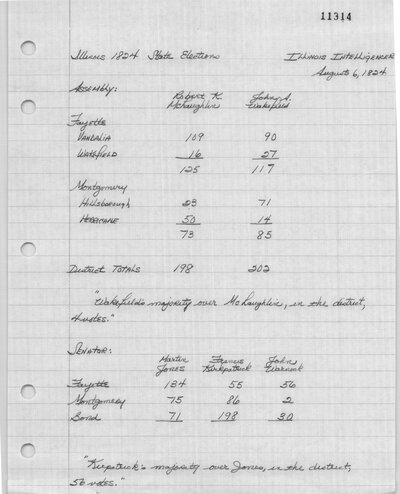 11314
Illinois 1824 State Elections
Illinois Intelligencer
August 6, 1824
Assembly:
Robert K. McLaughlin
John A. Wakefield
Fayette
Vandalia 109 90
Wakefield 16 27
125 117
Montgomery
Hillsborough 23 71
Hurricane 50 14
73 85
District Totals 198 202
"Wakefield's majority over McLaughlin, in the district,
4 votes."
Senator:
Martin Jones
Francis Kirkpatrick
John Warnock
Fayette 134 55 56
Montgomery 75 86 2
Bond 71 198 30
"Kirpatrick's majority over Jones, in the district,
56 votes."